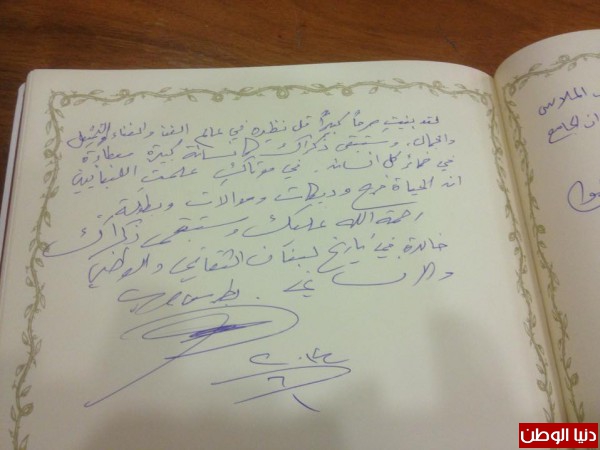 لقد بنيتِ صرحاً كبيراً قل نظيره في عالم الفن والغناء والتمثيل
والجمال. وستبقى ذكراك كإنسانة كبيرة معطاءة
في ضمائر كل انسان. في علمتِ اللبنانيين
ان الحياة فرح ودبكات وموالات وبطولة.
رحمة الله عليك وستبقى ذكراك
خالدة في تاريخ لبنان الثقافي والوطني
والانساني. بطرس حرب
الجامع
دنيا الوطن